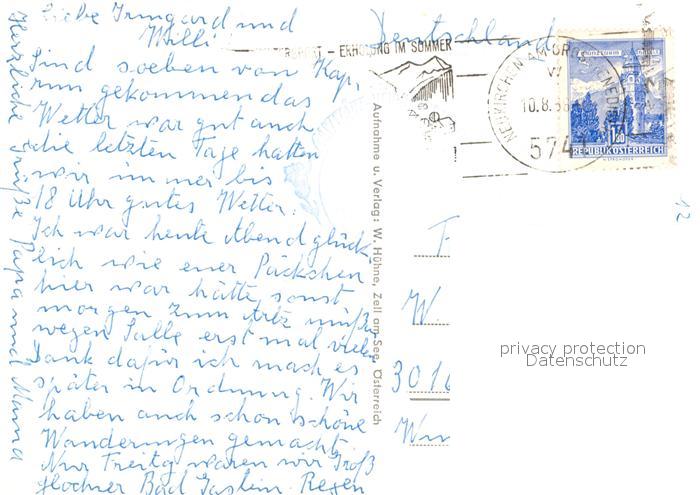 Liebe Irmgard und
Willi
Sind soeben von Kap.
run gekommen das
Wetter war gut auch
die letzten Tage hatten
wir immer bis
18 Uhr gutes Wetter.
Ich war heute Abend glück
lich wie euer Päckchen
hier war hätte sonst
morgen zum Artz
wegen erst mal vielen
Dank dafür ich mach es
später in Ordnung. Wir
haben auch schon schöne
Wanderungen gemacht
Nur Freitag waren wir Groß
glockner Bad Gastein Regen
Herzliche Grüße Papa und Mama
Aufnahme u. Verlag: W. Hühne, Zell am See, Österreich
Deutschland
- ERHOLUNG IM SOMMER
NEUKIRCHEN
10.8.
5741
1.80
REPUBLIK ÖSTERREICH
12
W.
3016
privacy protection
Datenschutz